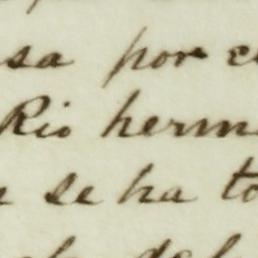 sa por e
Rio herm
e se ha to